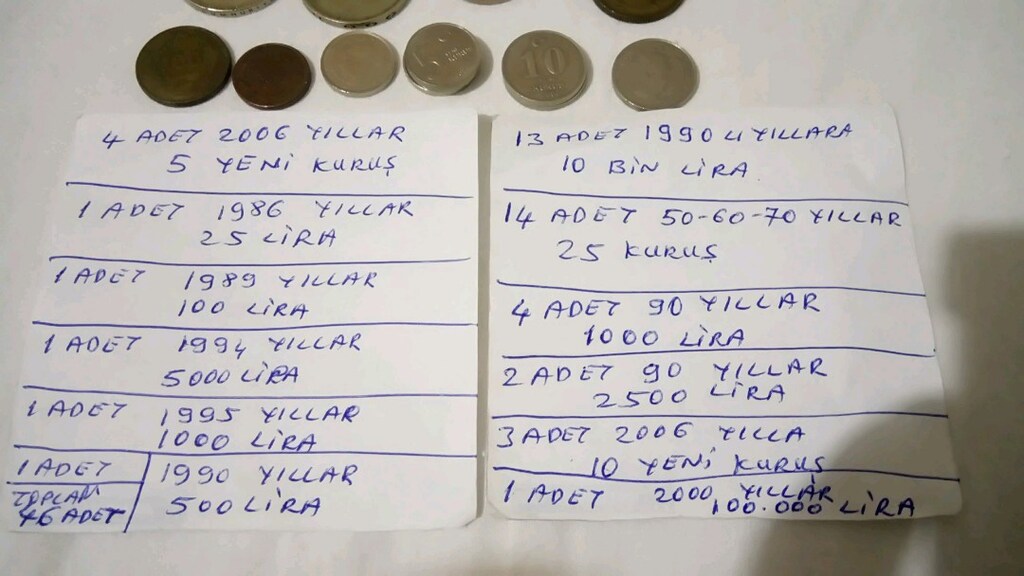 10
4 ADET 2006 YILLAR
5 YENİ KURUŞ
1 ADET 1986 YILLAR
25 LİRA
1 ADET 1989 YILLAR
100 LİRA
1 ADET 1994 YILLAR
5000 LİRA
1 ADET 1995 YILLAR
1000 LİRA
1 ADET 1990 YILLAR
500 LİRA
TOPLAM
46 ADET
13 ADET 1990 LI YILLARA
10 BİN LİRA
14 ADET 50-60-70 YILLAR
25 KURUŞ
4 ADET 90 YILLAR
1000 LİRA
2 ADET 90 YILLAR
2500 LİRA
3 ADET 2006 YILLA
10 YENİ KURUŞ
1 ADET 2000 YILLAR
100.000 LİRA